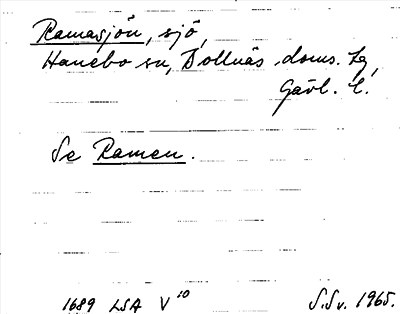 Ramasjön, sjö,
Hanebo sn, Bollnäs doms. lg,
Gävl. l.
Se Ramen.
1689 LSA V¹⁰ S.Sv. 1965.